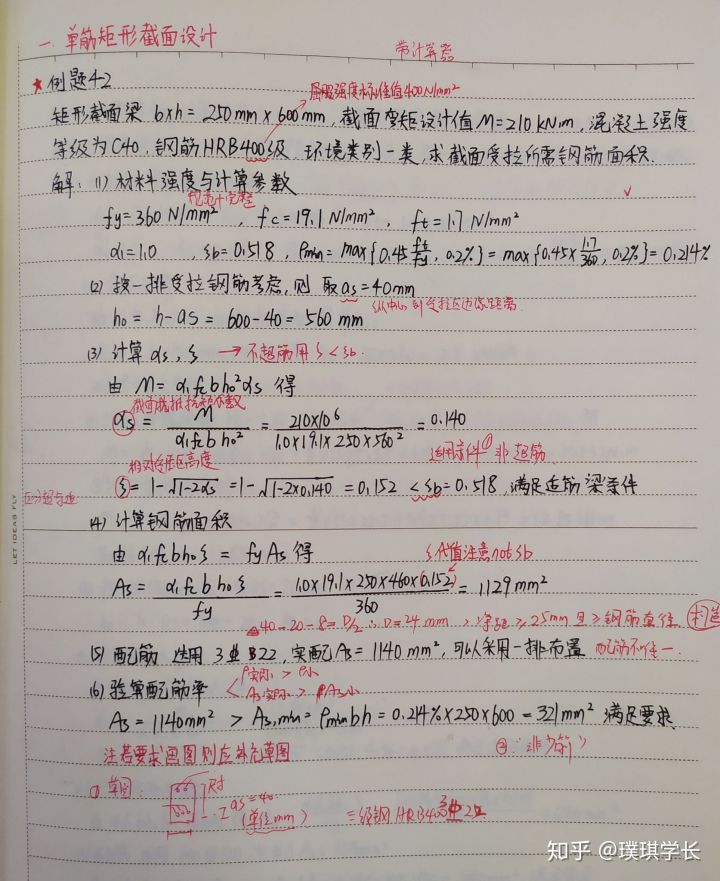 一. 单筋矩形截面设计
带计算器
★例题4-2
屈服强度标准值400N/mm²
矩形截面梁 b×h = 250mm × 600mm, 截面弯矩设计值M=210 kN·m, 混凝土强度
等级为C40, 钢筋HRB400级, 环境类别一类, 求截面受拉所需钢筋面积.
解: (1) 材料强度与计算参数
fy=360 N/mm², fc=19.1 N/mm², ft=1.7 N/mm²
α1=1.0, ξb=0.518, ρmin = max{0.45 ft/fy, 0.2%} = max{0.45× 1.7/360, 0.2%} = 0.214%
(2) 按一排受拉钢筋考虑, 则 取as=40mm
h0 = h-as = 600-40 = 560 mm
(3) 计算αs, ξ → 不超筋用ξ<ξb.
由 M = α1fcbh0²αs 得
αs = M / α1fcbh0² = 210×10⁶ / 1.0×19.1×250×560² = 0.140
适用条件① 非超筋
相对受压区高度
区分超与适
ξ = 1-√1-2αs = 1-√1-2×0.140 = 0.152 < ξb=0.518, 满足适筋梁条件
LET IDEAS FLY
(4) 计算钢筋面积
由 α1fcbh0ξ = fyAs 得
ξ代值注意not ξb
As = α1fcbh0ξ / fy = 1.0×19.1×250×460×0.152 / 360 = 1129 mm²
40-20-8=D/2 ∴D=24mm 净距≥25mm且≥钢筋直径 构造
(5) 配筋 选用 3⏀22, 实配As = 1140 mm², 可以采用一排布置 配筋不唯一.
(6) 验算配筋率
ρ实际 > ρ小
As实际 > As小
As = 1140mm² > As,min = ρmin bh = 0.214%×250×600 = 321mm² 满足要求.
注若要求画图则应补充草图
② 非少筋
① 草图:
尺寸
as=40
(单位mm)
三级钢 HRB400 3⏀22
知乎 @璞琪学长